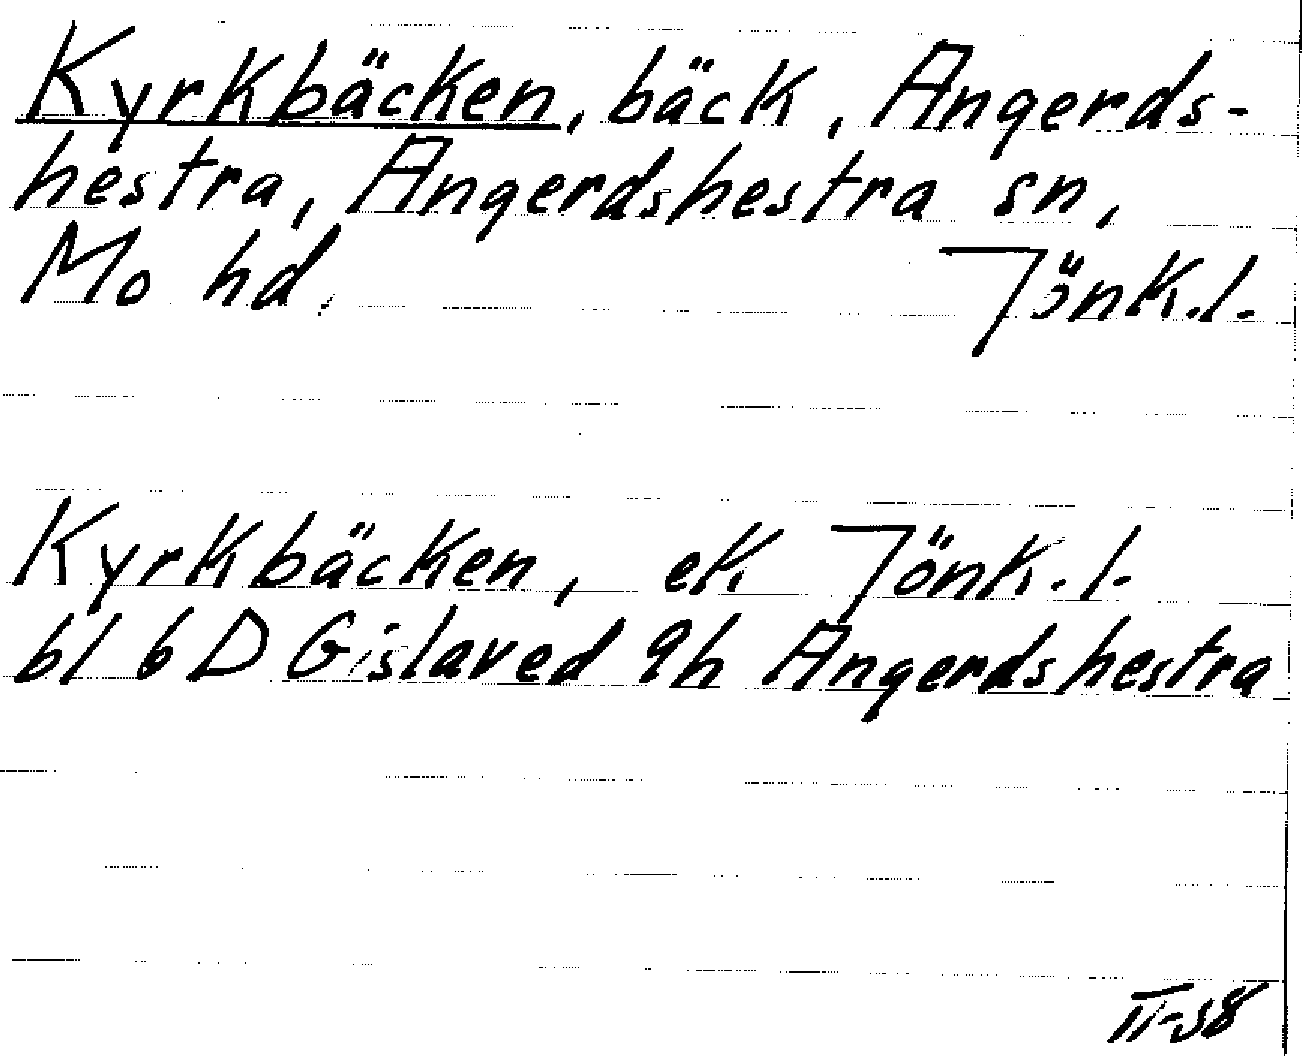 Kyrkbäcken, bäck, Angerds-
hestra, Angerdshestra sn,
Mo hd. Jönk.l.
Kyrkbäcken, ek Jönk.l.
bl 6D Gislaved 9h Angerdshestra
II-58